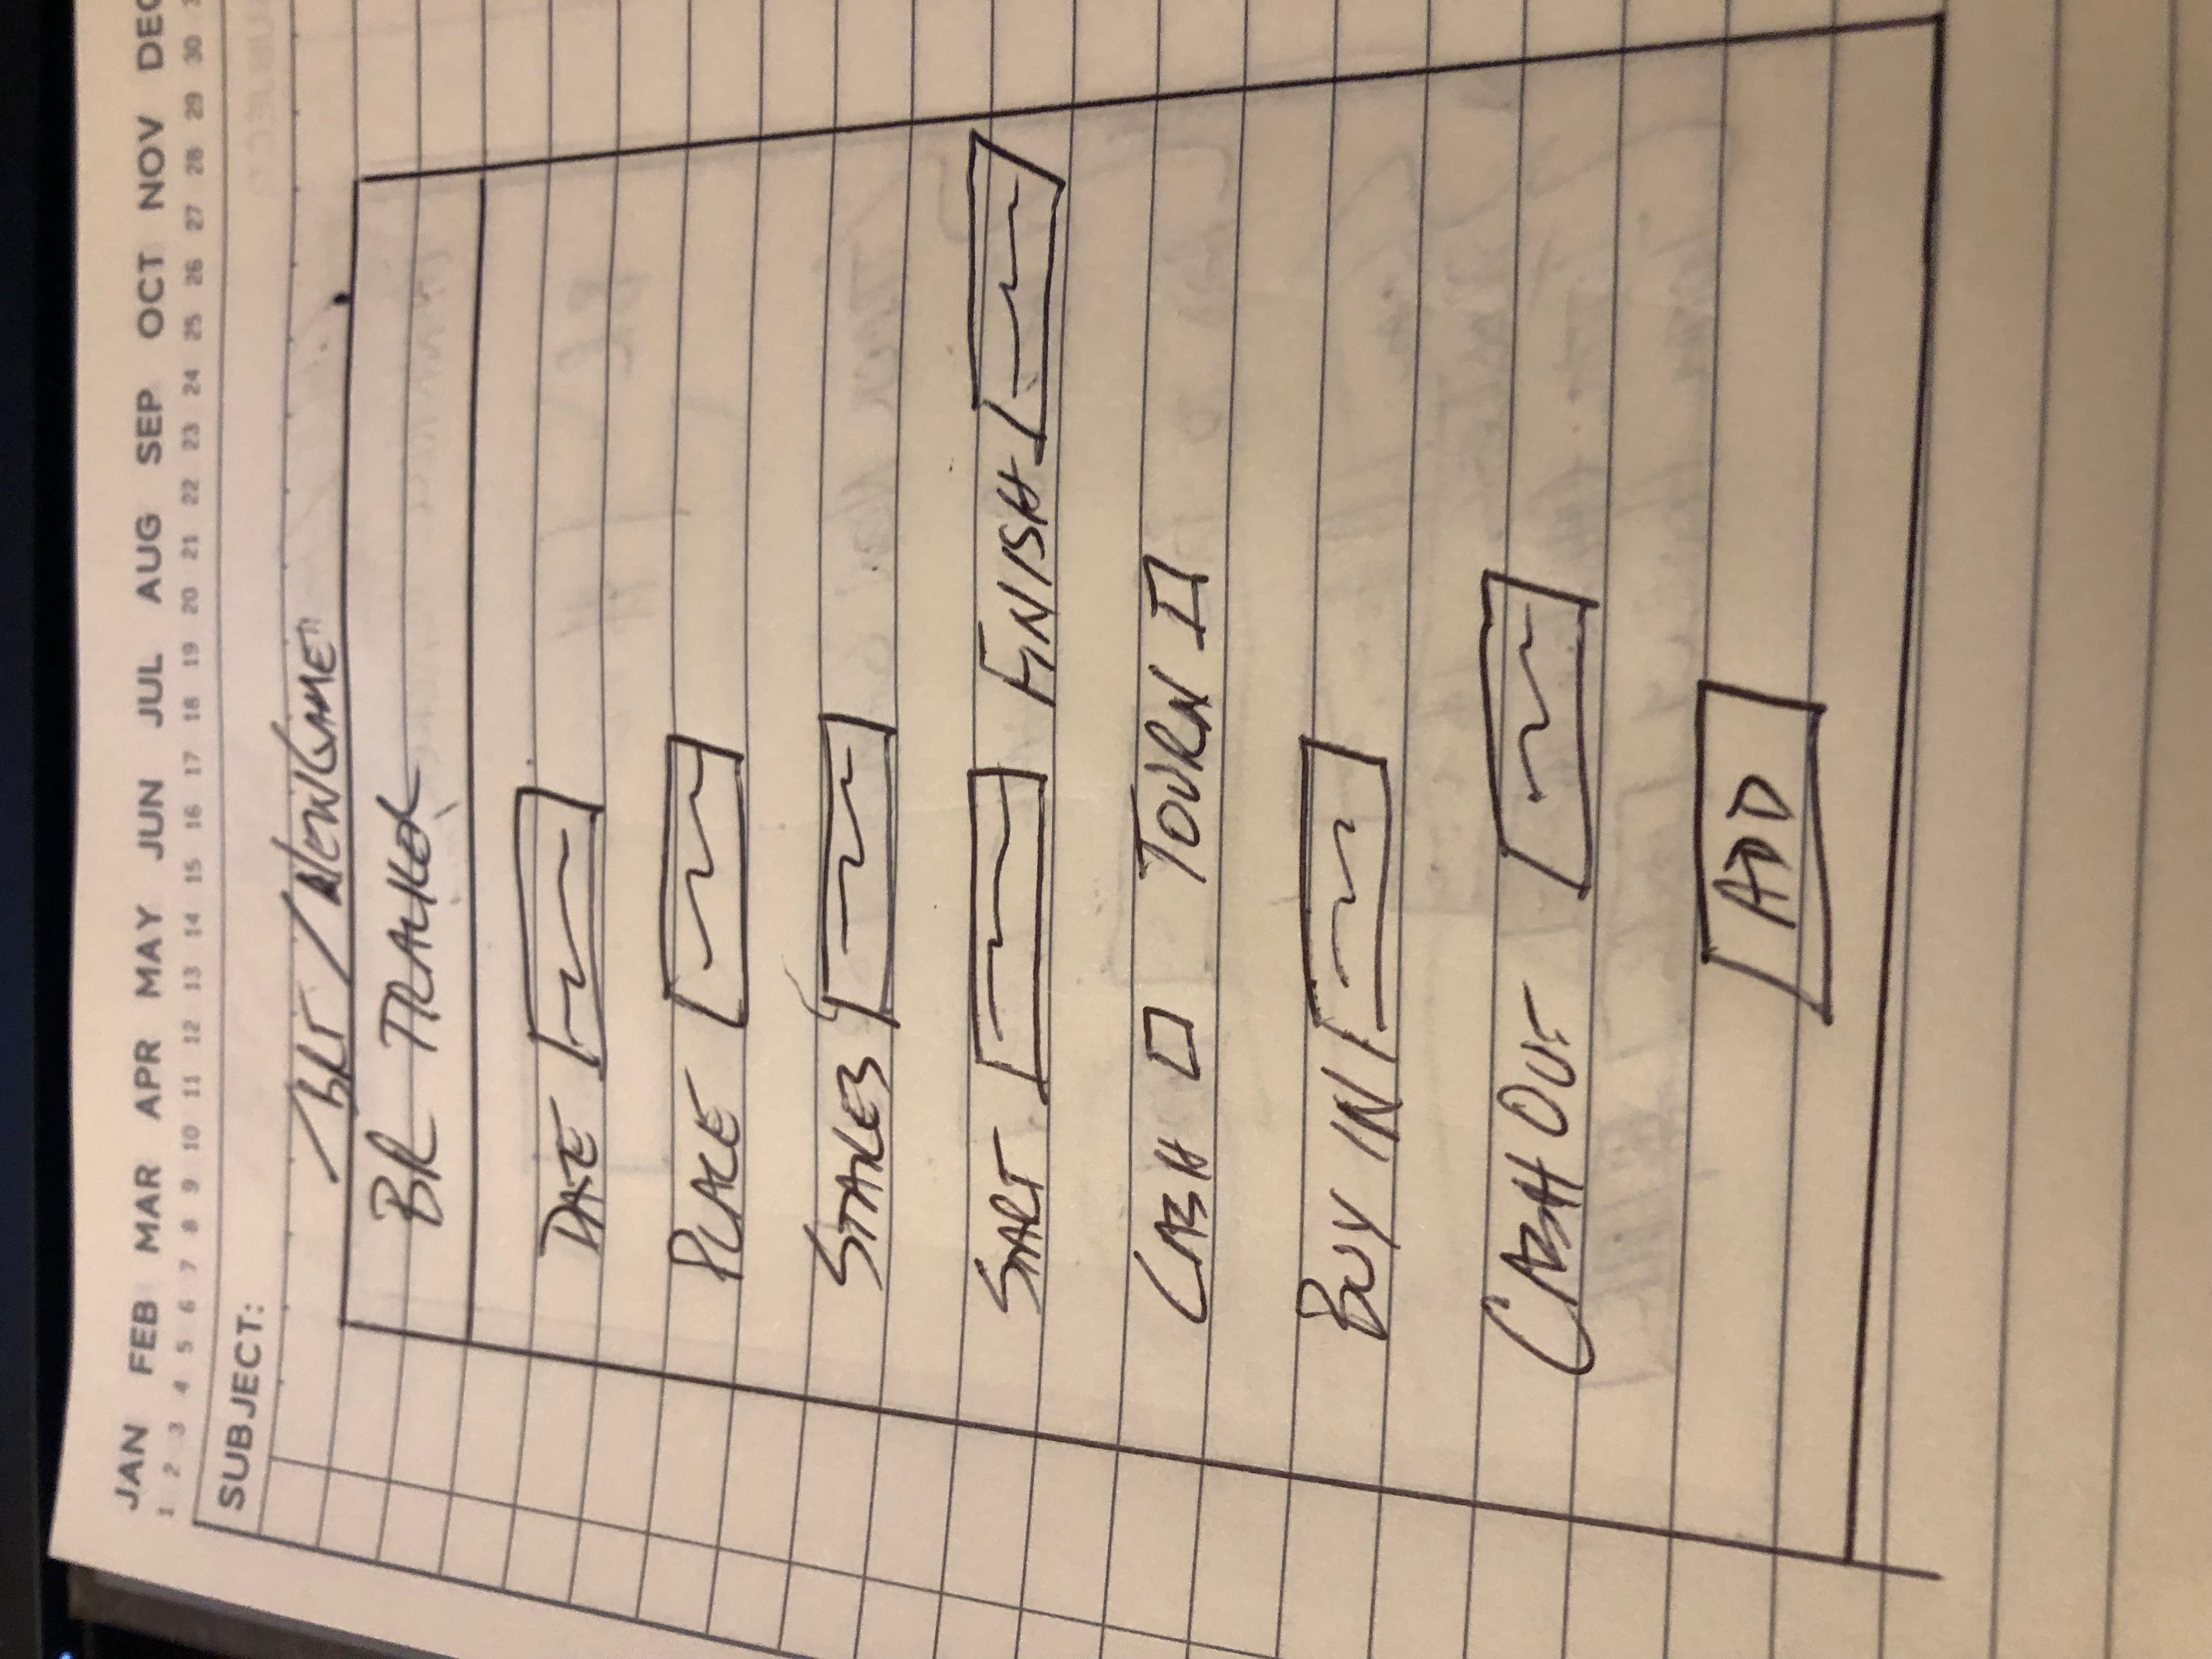 JAN FEB MAR APR MAY JUN JUL AUG SEP OCT NOV DEC
1 2 3 4 5 6 7 8 9 10 11 12 13 14 15 16 17 18 19 20 21 22 23 24 25 26 27 28 29 30
SUBJECT:
/BRT/NEWGAME
BR TRACKER
DATE
PLACE
STAKES
START FINISH
CASH TOURN
BUY IN
CASH OUT
ADD